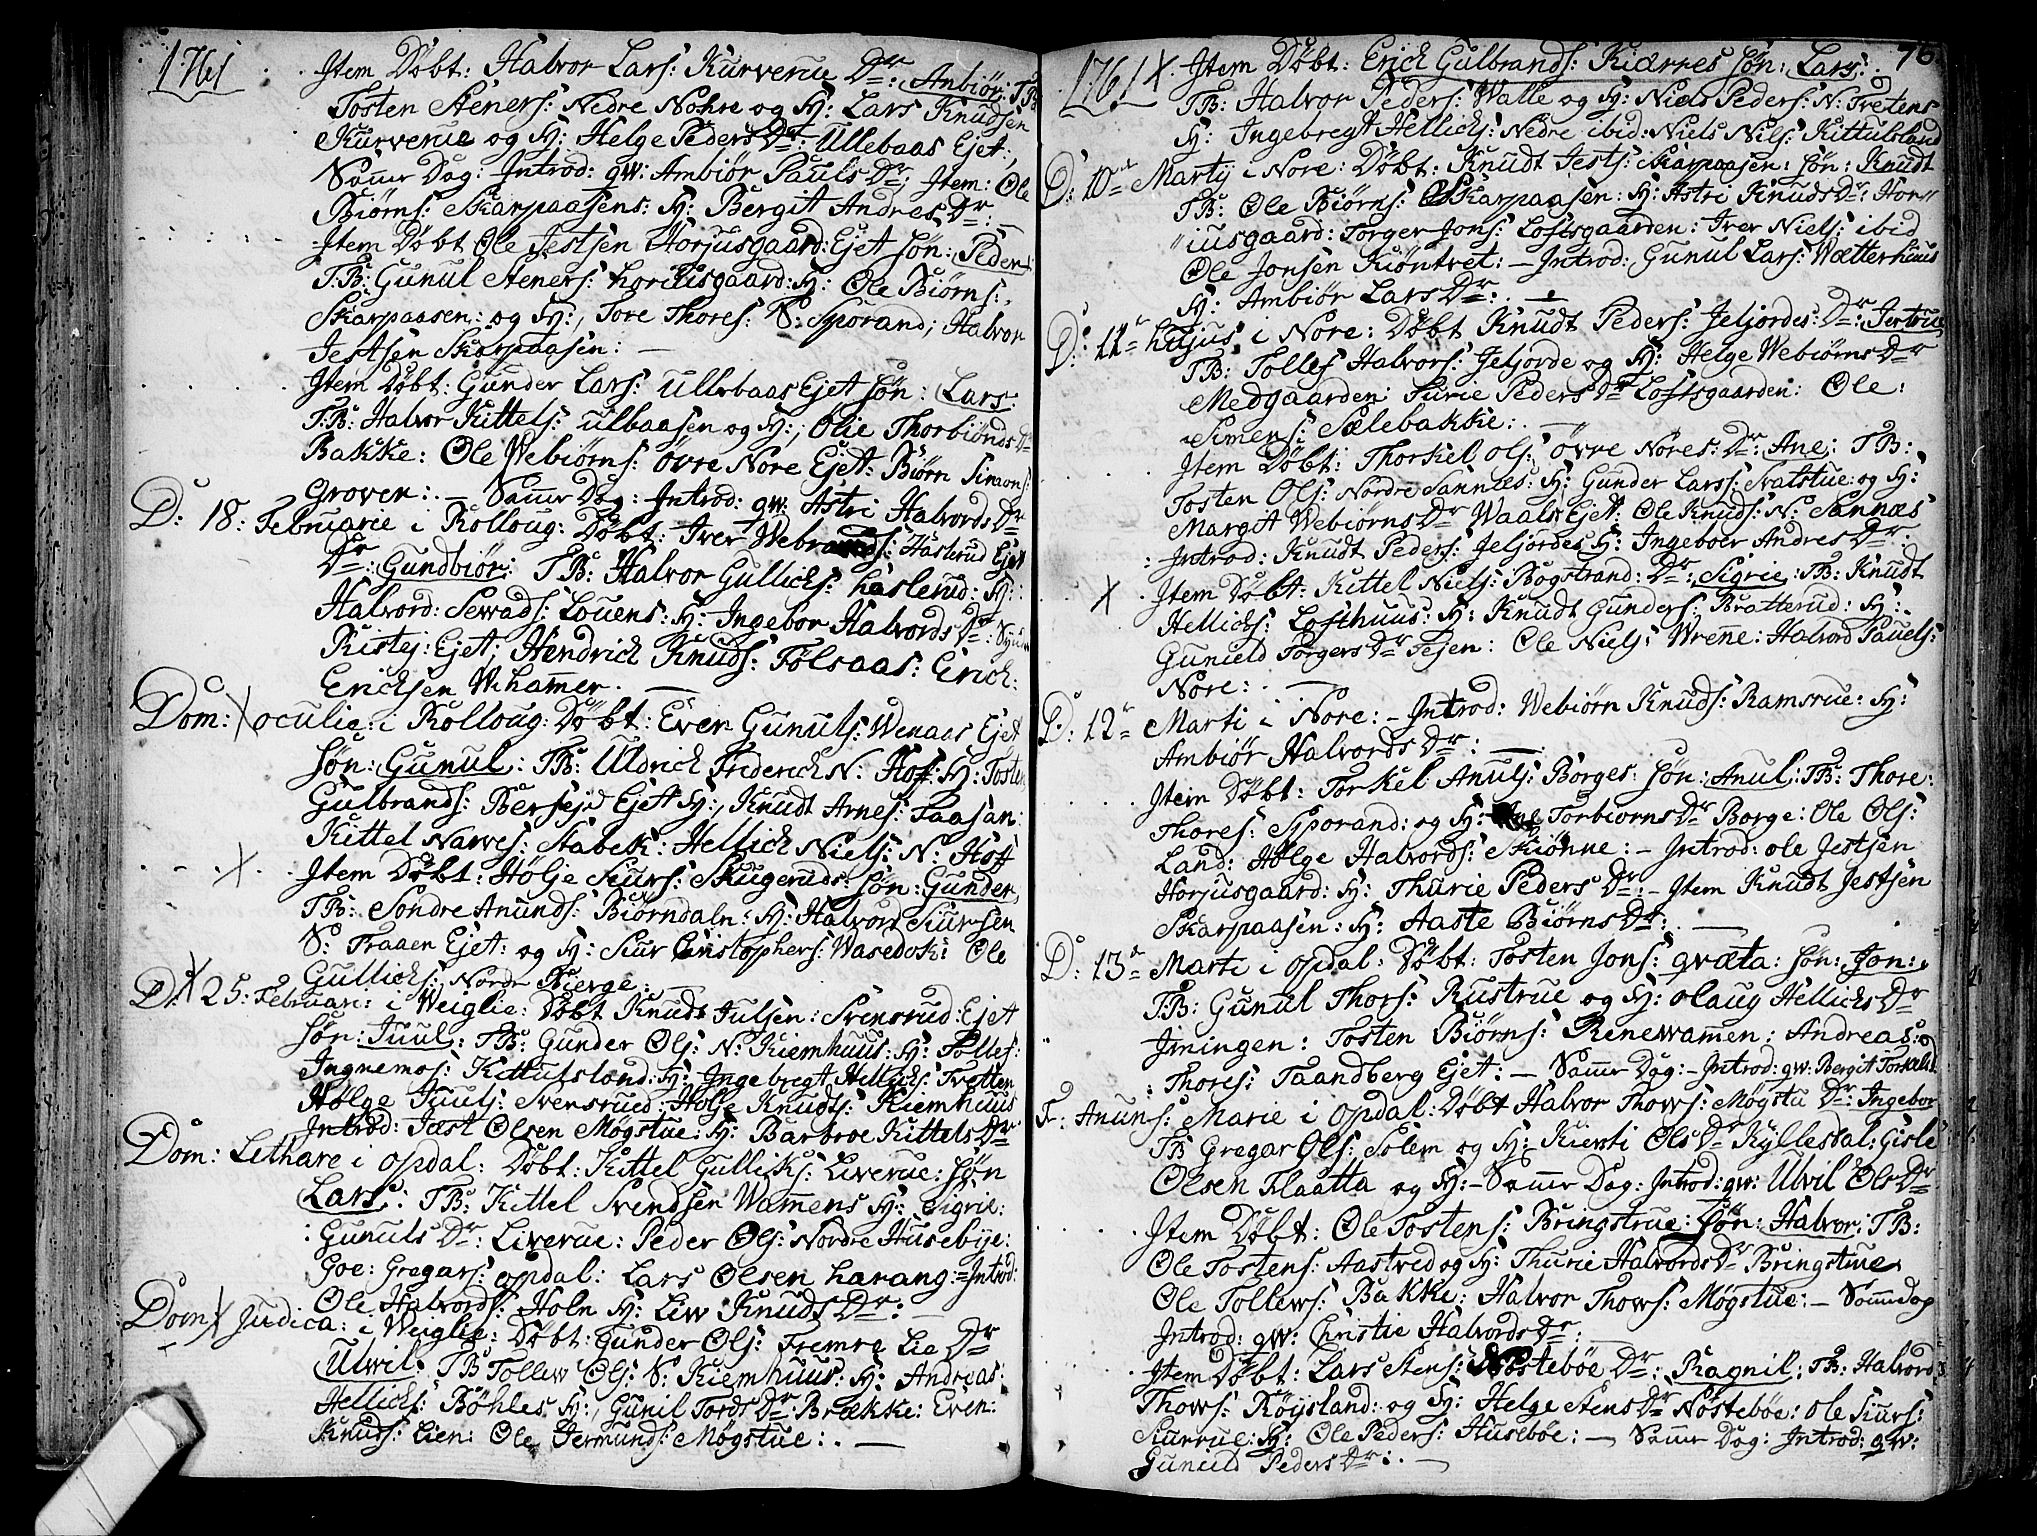 1761
Item Döbt: Halvor Lars: Kurverue Dr: Anbiör: TB:
Tosten Steners: Nedre Nohre og H: Lars Knudsen
Kurverue og H: Helge Peders Dr: Ullebaas Ejet:,
Samme Dag: Introd: qw: Ambiör Pauls Dr; Item: Ole
Biörns: Skarpaasens: H: Bergit Andres Dr: —
Item Döbt Ole Jestsen Horjusgaard: Ejet sön: Peder
T.B: Gunul Steners: Horjusgaard: H: Ole Biörns:,
Skarpaasen: og H:, Tore Thores: S: Sporand; Halvor
Jestsen Skarpaasen: —
Item Döbt: Gunder Lars: Ullebaas Ejet sön: Lars:
T.B: Halvor Kittels: Ulbaasen og H:, Olie Thorbiönds Dr
Bakke: Ole Webiörns: övre Nore Ejet: Biörn Simons:
Groven:. — Samme Dag: Introd: qw: Astri Halvords Dr
D: 18: Februarie i Rolloug: Döbt: Iver Haslerud Ejet
Dr: Gundbiör: TB: Halvor Gullichs: Haslerud: H:
Halvord: Sewads: Louens: H: Ingebor Halvords Dr:
Ristej: Ejet; Hendrich Knuds: Fölsaas: Erich:
Erichsen W:hamer. —
Dom: X oculie: i Rolloug: Döbt: Even Gunuls: Wenaas Ejet
sön: Gunul: TB: Uldrich Friderich N: Hof: H: Tosten
Gulbrands: Ejet H:, Knudt Arnes: Faasan:
Kittel Narves: Stabek: Hellich Niels: N: Hof
X Item Döbt: Hölje Siurs: Skugeruds: sön: Gunder,
TB: Söndre Anunds: Biörndaln: H: Halvord Siursen
S: Traaen Ejet: og H: Siur Christophers: Ole
Gullichs: Nordre Bierge: —
D: X 25: Februari: i Weiglie: Döbt Knudt Julsen: Svensrud: Ejet
sön: Juul: TB: Gunder Ols: N: Kiemhuus: H: Tolles:
Ingnemos: Kittulsland: H: Ingebregt Hellichs: Tretten
Hölge Juuls: Svensrued: Holje Knudts: Kiemhuus
Introd: Jæst Olsen Mögstue: H: Barbroe Kittels Dr
Dom: Lethare i opdal: Döbt: Kittel Gulliks: Liverue: sön
Lars: TB: Kittel Svendsen Wamens H: Sigrie:
Gunuls Dr: Liverue: Peder Ols: Nordre Husebye:
Goe: Gregars: opdal: Lars Olsen harang:= Introd:
Ole Halvords: Holn H: Liw Knuds Dr: —
Dom X Judica: i Weiglie: Döbt: Gunder Ols: Fremre Lie Dr
Ulwil: TB Tollew Ols: S: Kiemhuus: H: Andreas:
Hellichs: Böhles H:, Gunil Tords Dr: Brække: Even:
Knuds: Lien: Ole Germunds: Mögstue:. —
76
1761 X. Item Döbt: Erich Gulbrands: Kiærnes sön: Lars:.
TB: Halvor Peders: Walle og H: Niels Peders: N: Tretens
H: Ingebregt Hellichs: Nedre ibid: Niels Nils: Kittulsland
D: 10de Martij i Nore: Döbt: Knudt Jests: Skarpaasen: sön: Knudt
TB: Ole Biörns: Skarpaasen: H: Astri Knuds Dr: Hor"
"iusgaard: Torger Jons: Loftsgaarden: Iver Niels: ibid
Ole Jonsen Kiöntvet: — Introd: Gunul Lars: Wætterhuus
H: Ambiör Lars Dr:. —
D: 11te hujus i Nore: Döbt Knudt Peders: Jeljordes: Dr: Jertrue
TB: Tolles Halvors: Jeljorde og H: Helge Webiörns Dr
Medgaarden: Turie Peders Dr Loftsgaarden: Ole:
Simens: Sælebakke:. —
Item Döbt: Thorkel ols: övre Nores: Dr: Ane: TB:
Tosten Ols: Nordre Sannæs: H: Gunder Lars: Tratstue: og H:
Margit Webiörns Dr Waals Ejet: Ole Knuds: N: Sannæs
Introd: Knudt Peders: Jeljordes H: Ingeboer Andres Dr:
X Item Döbt: Kittel Niels: Bogstrand: Dr: Sigrie: TB: Knudt
Hellichs: Lofthuus: H: Knudt Gunders: Bratterud: H:
Gunield Torgers Dr Tejen: Ole Niels: Wrenne: Halvord Pauels:
Nore:. —
D: 12te Marti i Nore: — Introd: Webiörn Knuds: Ramsrue: H:
Ambiör Halvords Dr: —
Item Döbt: Torkel Anuls: Borges: sön: Anul: TB: Thore:
Thores: Sporand: og H: Torbiorns Dr Borge: Ole Ols:
Land: Holge Halvords: Skiönne: — Introd: ole Jestsen
Horjusgaard: H: Thurie Peders Dr: — Item Knudt Jestsen
Skarpaasen: H: Aaste Biörns Dr:. —
D: 13de Marti i opdal: Döbt: Tosten Jons: qvæta: sön: Jon:.
T.B: Gunul Thors: Rustrue og H: olaug Hellichs Dr
Imingen: Tosten Biörns: Renewamen: Andreas:
Thores: Taandberg Ejet: — Samme Dag: — Introd: qw: Bergit Torkels Dr
F: Anuns: Marie i opdal: Döbt Halvor Thows: Mögstu Dr: Ingebor
TB Gregar Ols: Solem og H: Kiersti Ols Dr Kyllesdal: Gisle
Olsen Flaatta og H: — Samme Dag: Introd: qw: Ulvil Ols Dr
Item Döbt: Ole Tostens: Bringstrue: sön: Halvor: TB:
Ole Tostens: Aastved og H: Thurie Halvords Dr Bringstue
Ole Tollews: Bakke: Halvor Thows: Mögstue: — Samme dag
Introd: qw: Christie Halvords Dr: —
Item Döbt: Lars Stens: Nöstebøe Dr: Ragnil: TB: Halvord
Thows: Röysland: og H: Helge Stens Dr Nöstebøe: ole Siurs:
Siurrue: H: Ole Peders: Husebøe: — Samme Dag: Introd: qw:
Gunuld Peders Dr:. —